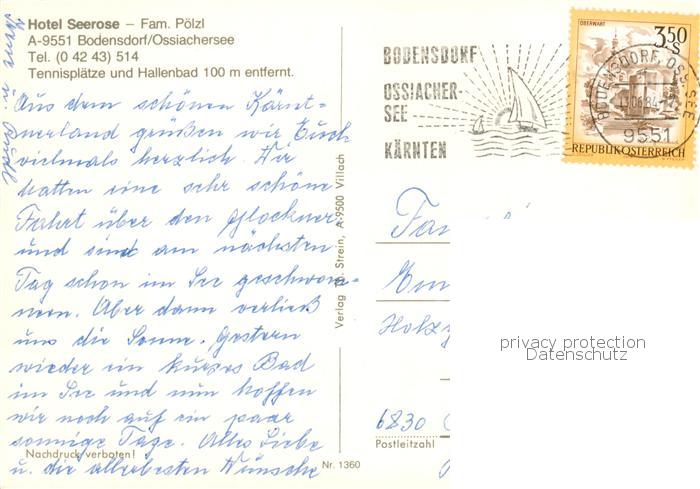 Hotel Seerose – Fam. Pölzl
A-9551 Bodensdorf/Ossiachersee
Tel. (0 42 43) 514
Tennisplätze und Hallenbad 100 m entfernt.
Aus dem schönen Kärnt=
nerland grüßen wir Euch
vielmals herzlich. Wir
hatten eine sehr schöne
Fahrt über den Glockner
und sind am nächsten
Tag schon im See geschwom-
men. Aber dann verließ
uns die Sonne. Gestern
wieder ein kurzes Bad
im See und nun hoffen
wir noch auf ein paar
sonnige Tage. Alles Liebe
u. die allerbesten Wünsche
Nachdruck verboten!
Nr. 1360
Verlag Th. Strein, A-9500 Villach
BODENSDORF
OSSIACHER-
SEE
KÄRNTEN
OBERWART
3.50
S
REPUBLIK ÖSTERREICH
BODENSDORF, OSS. SEE
13.06.84
9551
Fa
Holz
6830
Postleitzahl
privacy protection
Datenschutz